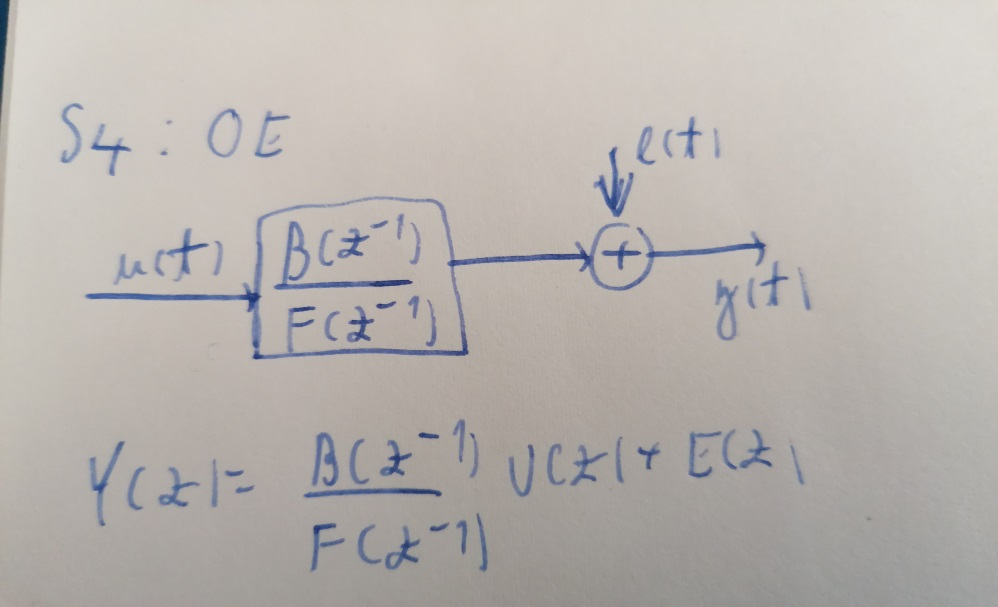 S4: OE
e(t)
u(t)
B(z⁻¹)
+
F(z⁻¹)
y(t)
Y(z) = B(z⁻¹)/F(z⁻¹) U(z) + E(z)